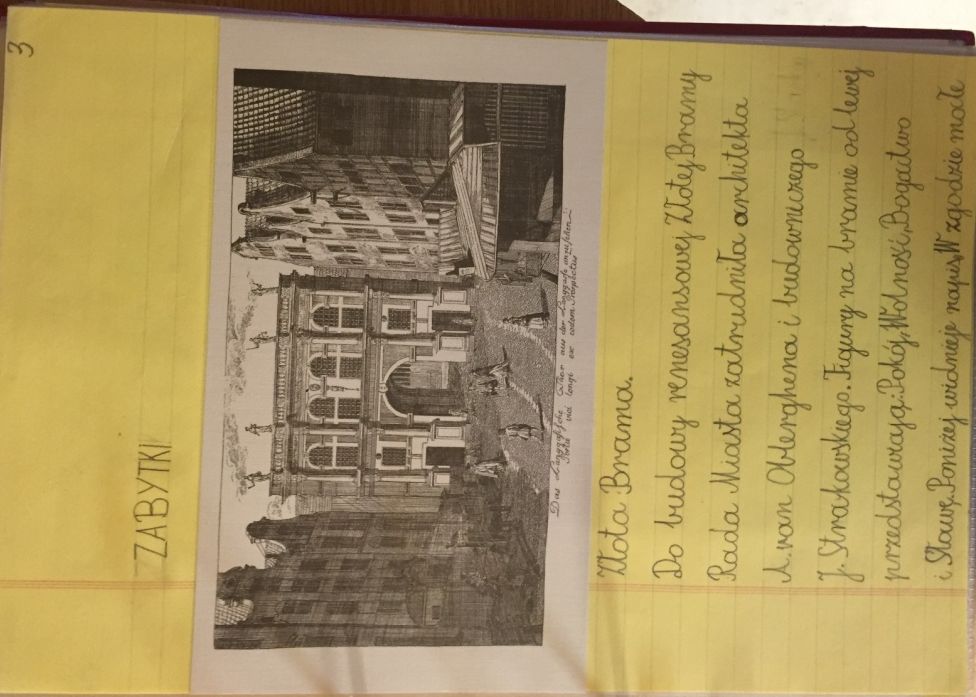 3
ZABYTKI
Das Langgassische Thor aus der Langgasse anzusehen
Porta viæ longæ ex eadem Prospectus
Złota Brama.
Do budowy renesansowej Złotej Bramy
Rada Miasta zatrudniła architekta
A. van Obberghena i budowniczego
J. Strakowskiego. Figury na bramie od lewej
przedstawiają: Pokój, Wolność, Bogactwo
i Sławę. Poniżej widnieje napis „W zgodzie małe